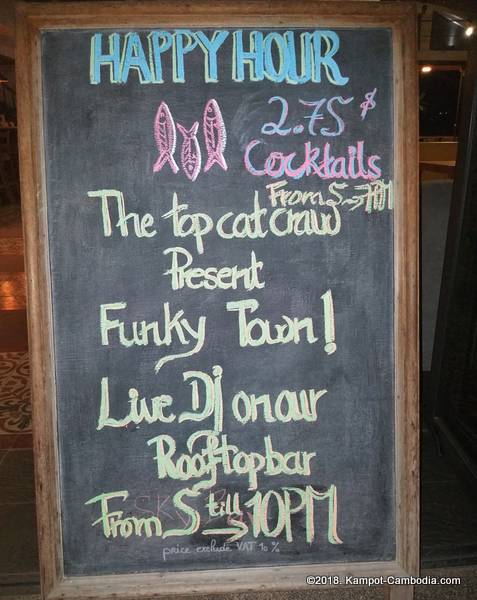 HAPPY HOUR
2.75 $
Cocktails
From 5 → 7PM
The top cat crauw
Present
Funky Town!
Live Dj on our
Rooftopbar
From 5 till → 10PM
price exclude VAT 10 %
©2018. Kampot-Cambodia.com